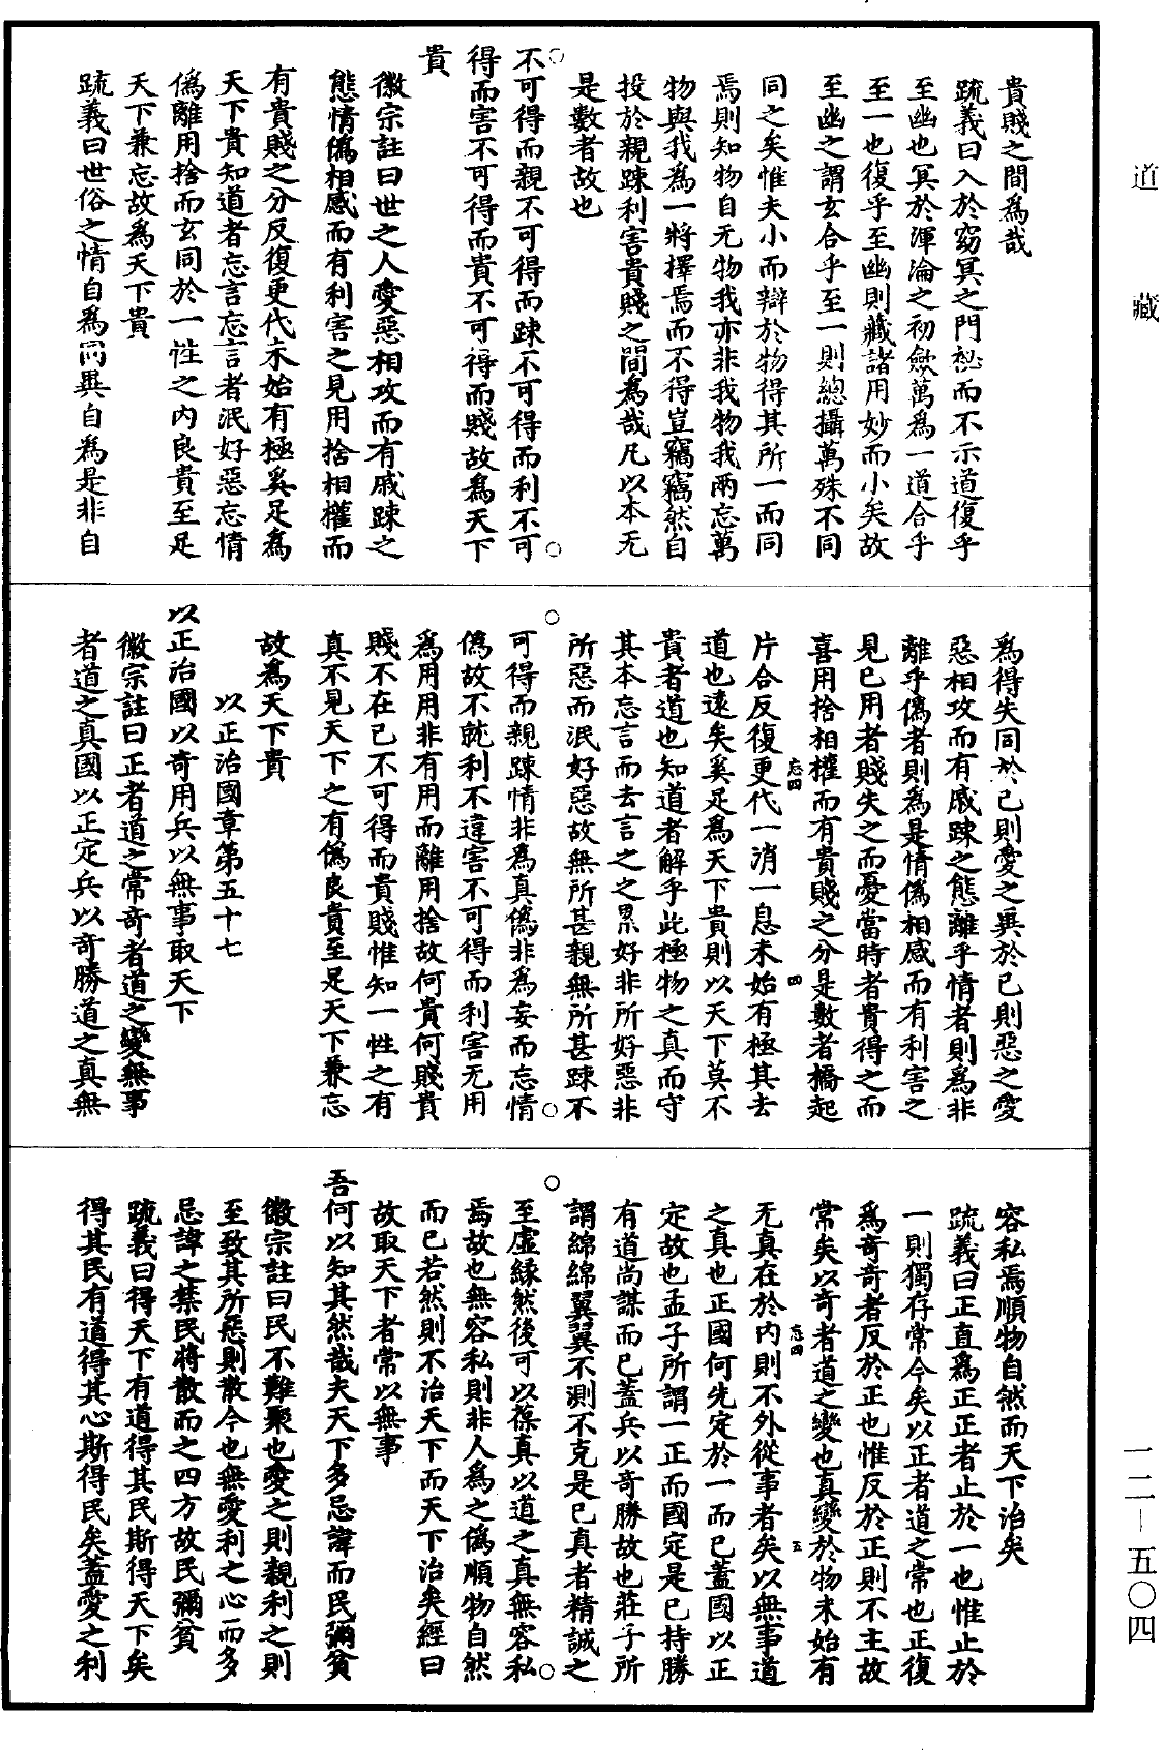 道藏
貴賤之間為哉
疏義曰入於窈冥之門祕而不示道復乎
至幽也冥於渾淪之初斂萬為一道合乎
至一也復乎至幽則藏諸用妙而小矣故
至幽之謂玄合乎至一則總攝萬殊不同
同之矣惟夫小而辯於物得其所一而同
焉則知物自无物我亦非我物我兩忘萬
物與我為一將擇焉而不得豈竊竊然自
投於親踈利害貴賤之間為哉凡以本无
是數者故也
不可得而親不可得而踈不可得而利不可
得而害不可得而貴不可得而賤故為天下
貴
徽宗註曰世之人愛惡相攻而有戚踈之
態情偽相感而有利害之見用捨相權而
有貴賤之分反復更代未始有極奚足為
天下貴知道者忘言忘言者泯好惡忘情
偽離用捨而玄同於一性之內良貴至足
天下兼忘故為天下貴
疏義曰世俗之情自為同異自為是非自
為得失同於己則愛之異於己則惡之愛
惡相攻而有戚踈之態離乎情者則為非
離乎偽者則為是情偽相感而有利害之
見已用者賤失之而憂當時者貴得之而
喜用捨相權而有貴賤之分是數者橋起
片合反復更代一消一息未始有極其去
道也遠矣奚足為天下貴則以天下莫不
貴者道也知道者解乎此極物之真而守
其本忘言而去言之之累好非所好惡非
所惡而泯好惡故無所甚親無所甚踈不
可得而親踈情非為真偽非為妄而忘情
偽故不就利不違害不可得而利害无用
為用用非有用而離用捨故何貴何賤貴
賤不在已不可得而貴賤惟知一性之有
真不見天下之有偽良貴至足天下兼忘
故為天下貴
以正治國章第五十七
以正治國以奇用兵以無事取天下
徽宗註曰正者道之常奇者道之變無事
者道之真國以正定兵以奇勝道之真無
忘四
四
容私焉順物自然而天下治矣
疏義曰正直為正正者止於一也惟止於
一則獨存常今矣以正者道之常也正復
為奇奇者反於正也惟反於正則不主故
常矣以奇者道之變也真變於物未始有
无真在於內則不外從事者矣以無事道
之真也正國何先定於一而已蓋國以正
定故也孟子所謂一正而國定是已持勝
有道尚謀而已蓋兵以奇勝故也莊子所
謂綿綿翼翼不測不克是已真者精誠之
至虛緣然後可以葆真以道之真無容私
焉故也無容私則非人為之偽順物自然
而已若然則不治天下而天下治矣經曰
故取天下者常以無事
吾何以知其然哉夫天下多忌諱而民彌貧
徽宗註曰民不難聚也愛之則親利之則
至致其所惡則散今也無愛利之心而多
忌諱之禁民將散而之四方故民彌貧
疏義曰得天下有道得其民斯得天下矣
得其民有道得其心斯得民矣蓋愛之利
忘四
五
一二－五〇四